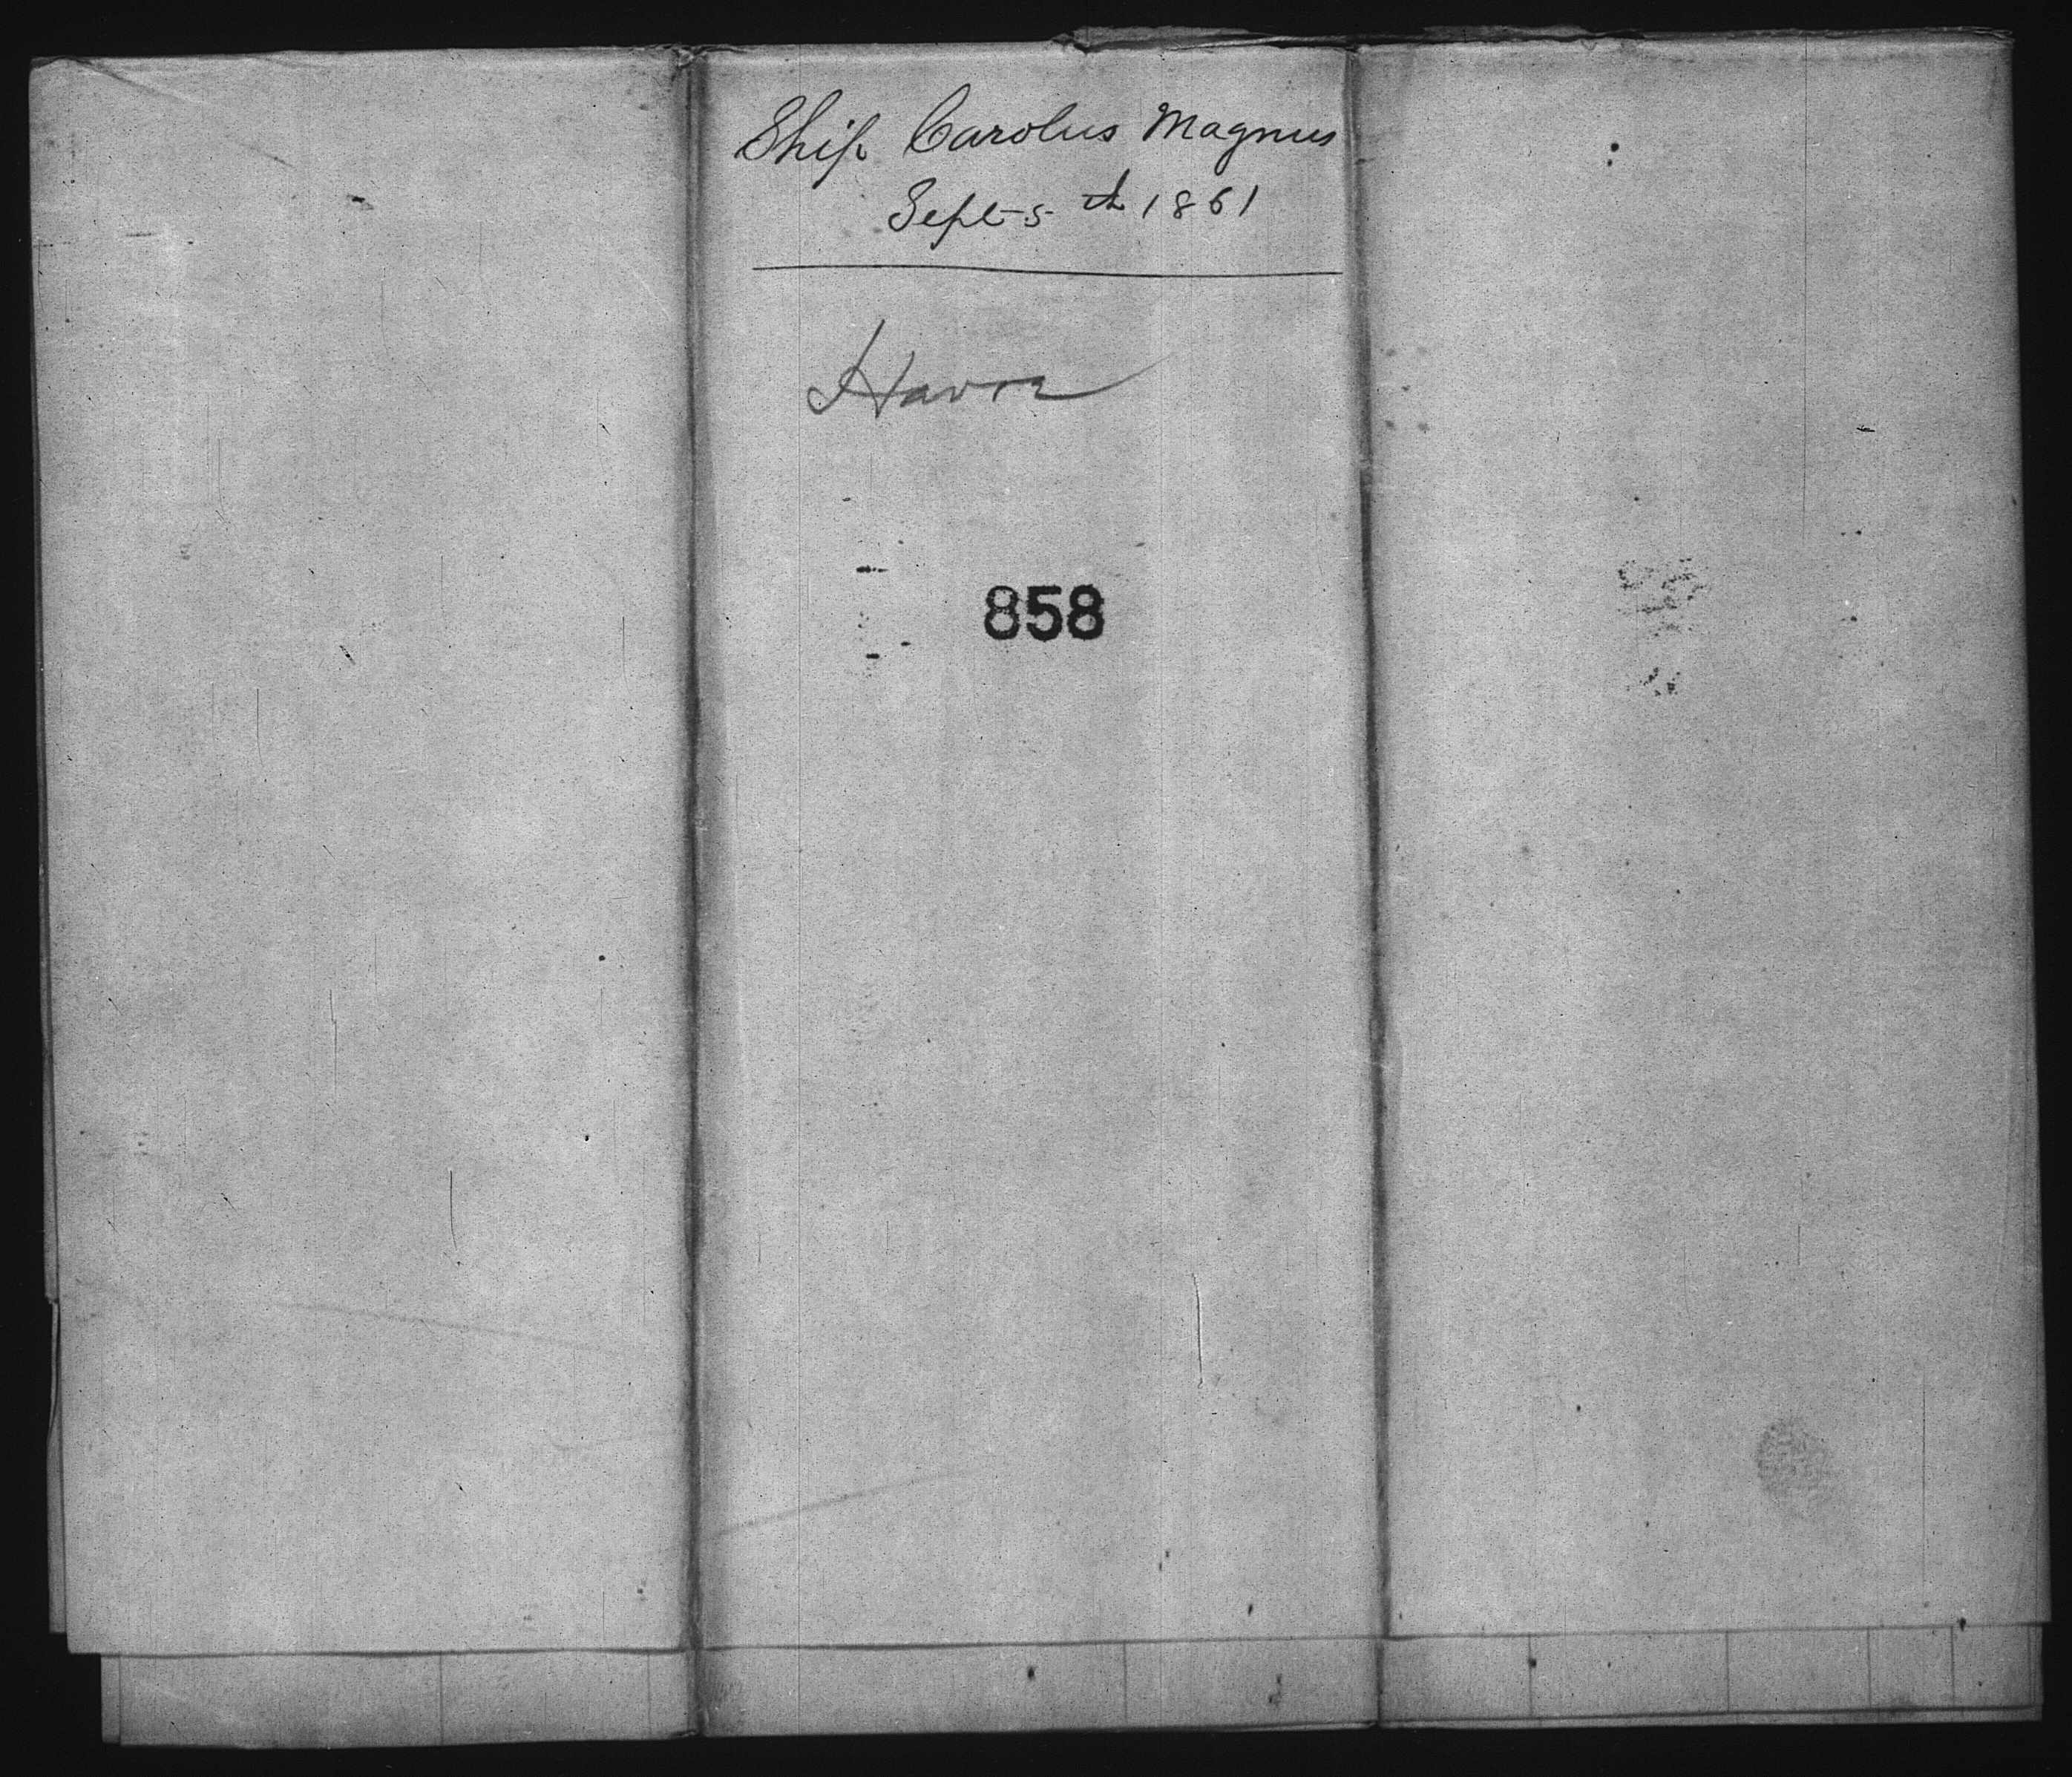 Ship Carolus Magnus
Sept 5th 1861
Havre
858